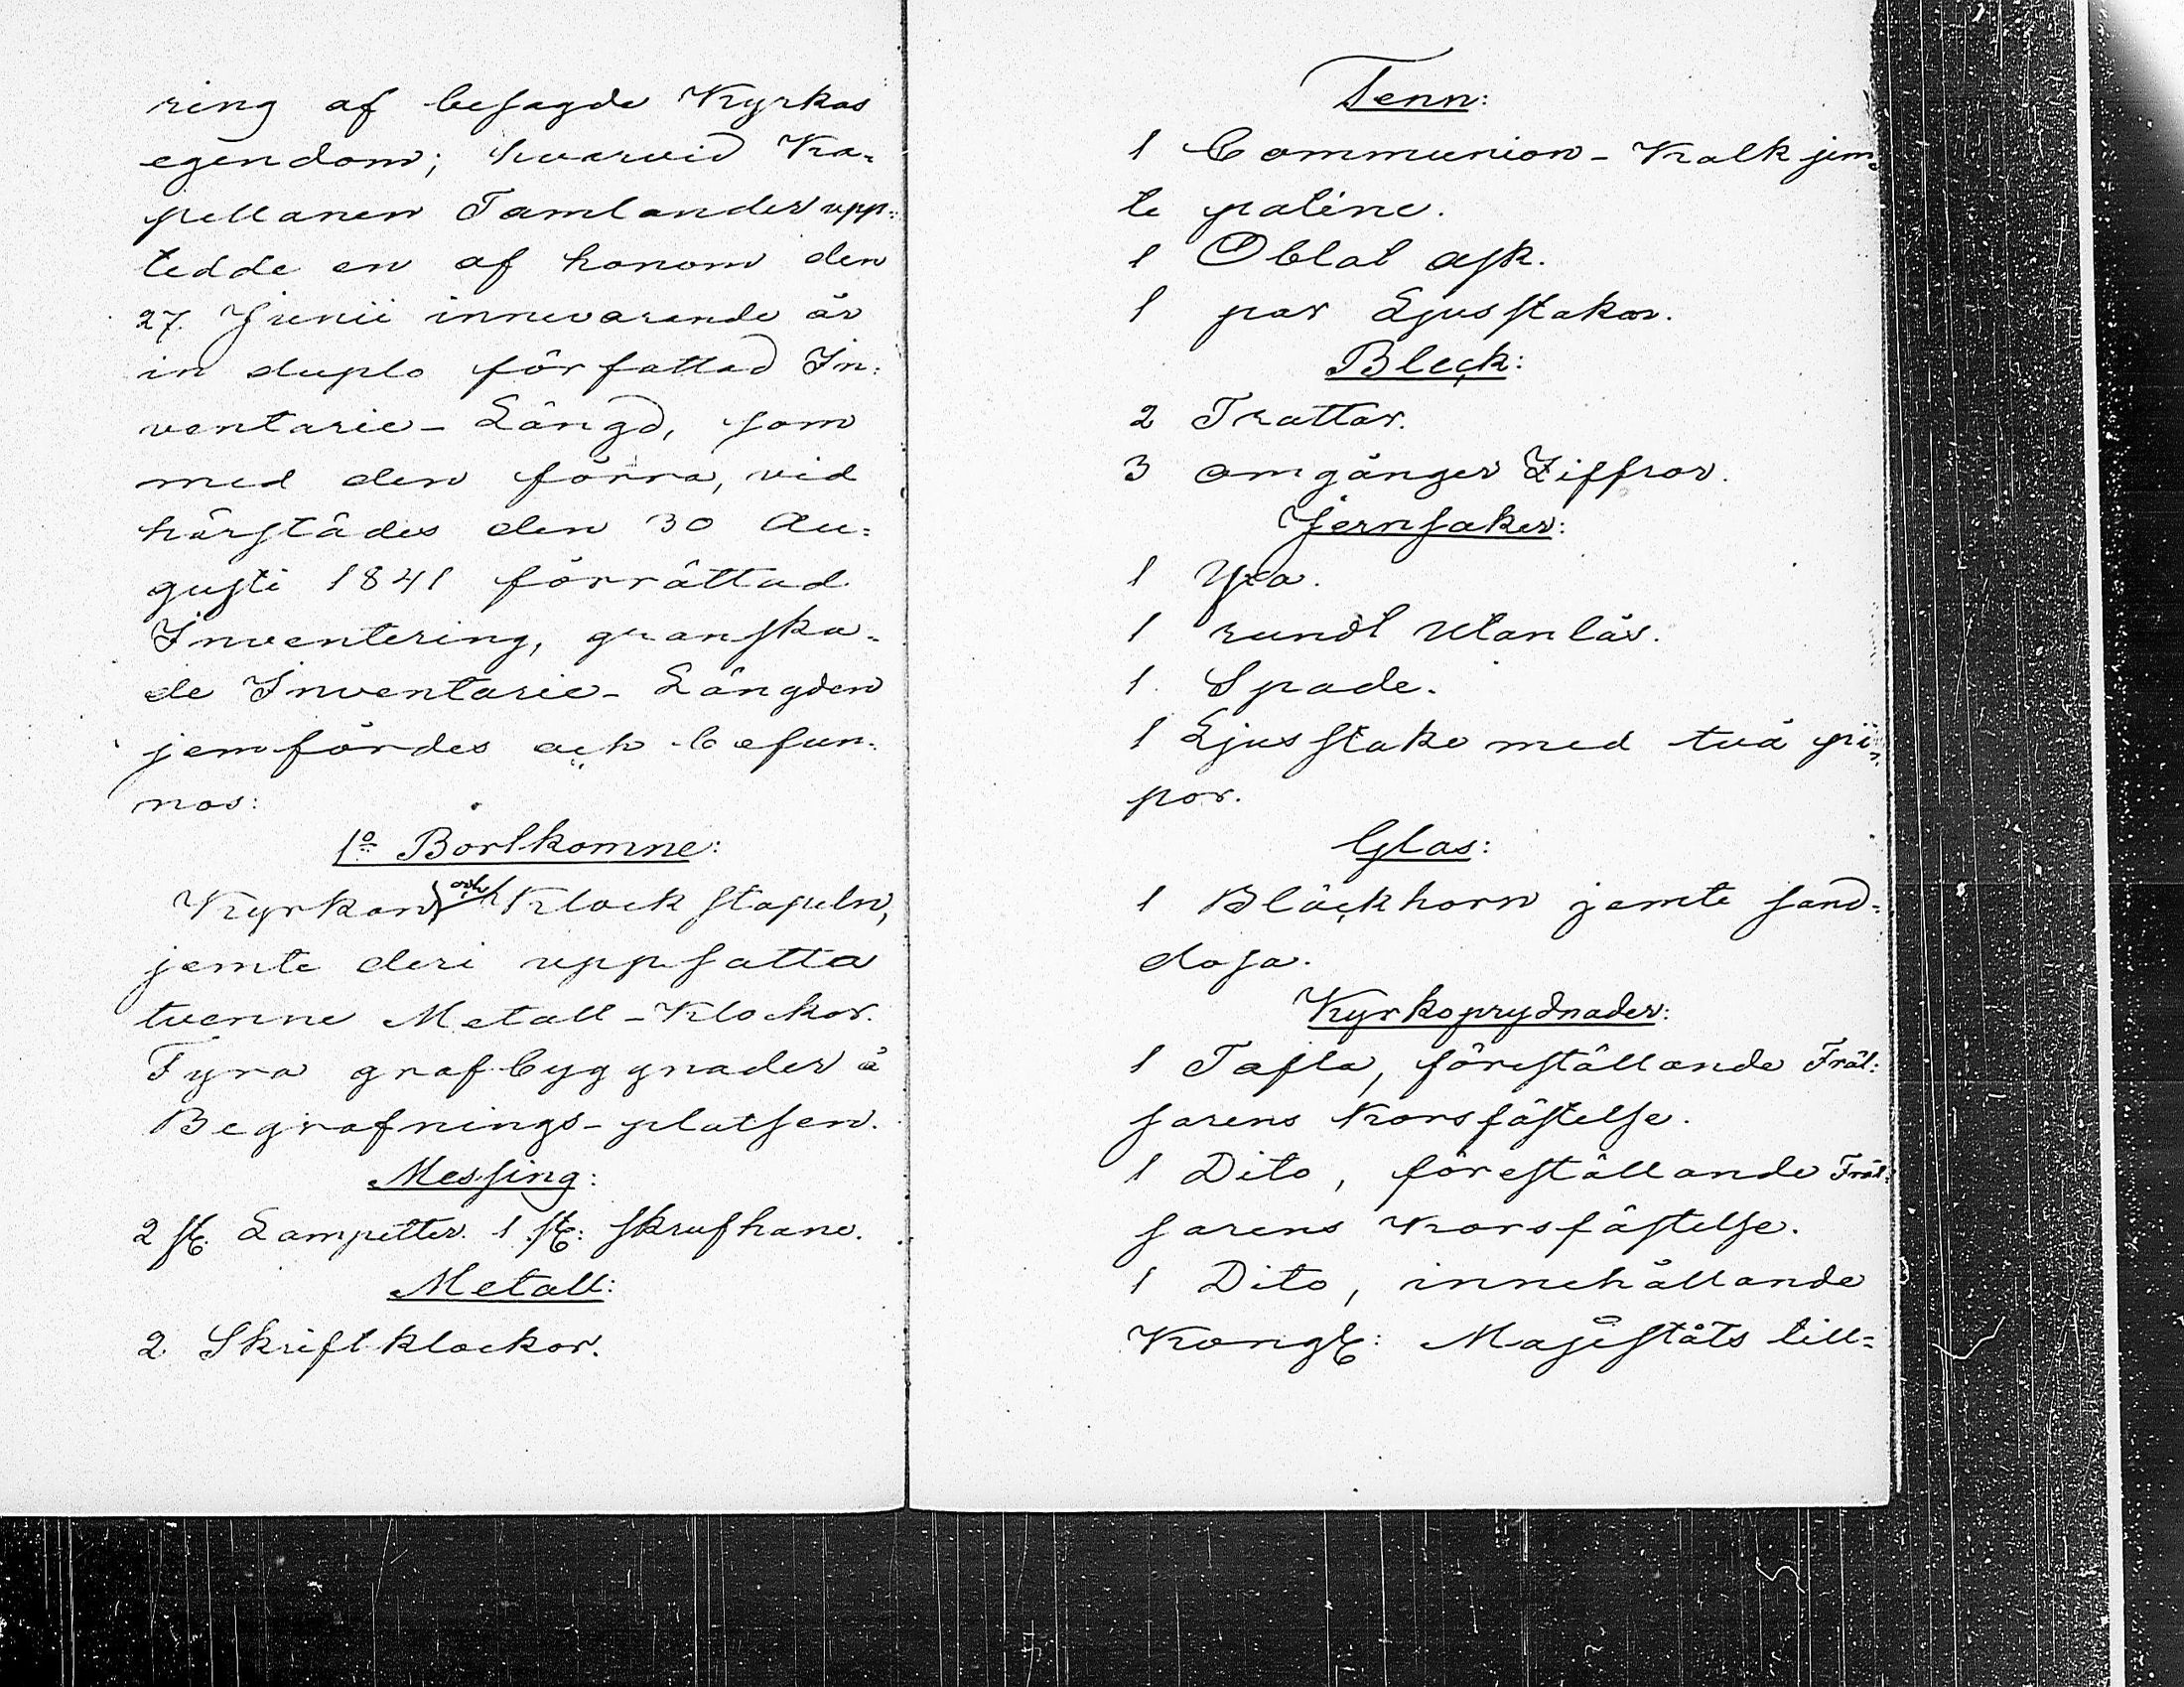 ring af besagde Kyrkas
egendom; hvarvid Ka-
pellanen Tamlander upp-
tedde en af honom den
27. Junii innevarande år
in duplo författad In-
ventarie-Längd, som
med den förra, vid
härstädes den 30 Au-
gusti 1841 förrättad
Inventering, granska-
de Inventarie-Längden
jemfördes och befun-
nos:
1º Bortkomne:
Kyrkan och Klockstapeln,
jemte deri uppsatta
tvenne Metall-Klockor.
Fyra grafbyggnader å
Begrafnings-platsen.
Messing:
2 st. Lampetter. 1 st: skrufhane.
Metall:
2 Skriftklockor.
Tenn:
1 Communion-Kalk jem-
te paténe.
1 Oblat ask.
1 par Ljusstakar.
Bleck:
2 Trattar.
3 omgånger Ziffror.
Jernsaker:
1 Yxa.
1 rundt utanlås.
1 Spade.
1 Ljusstake med två pi-
por.
Glas:
1 Bläckhorn jemte sand-
dosa.
Kyrkoprydnader:
1 Tafla, föreställande Fräl-
sarens Korsfästelse.
1 Dito, föreställande Fräl-
sarens Korsfästelse.
1 Dito, innehållande
Kongl: Majestäts till-